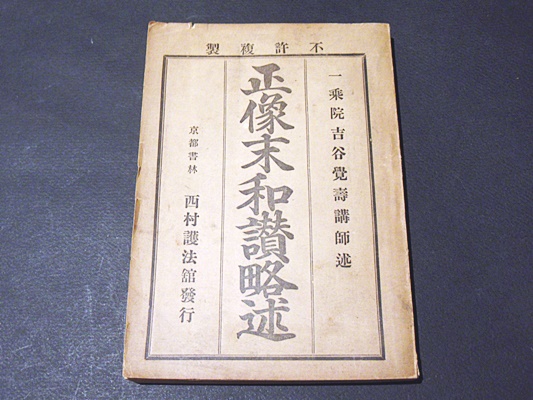 不許複製
一乘院吉谷覺壽講師述
正像末和讃略述
京都書林
西村護法舘發行